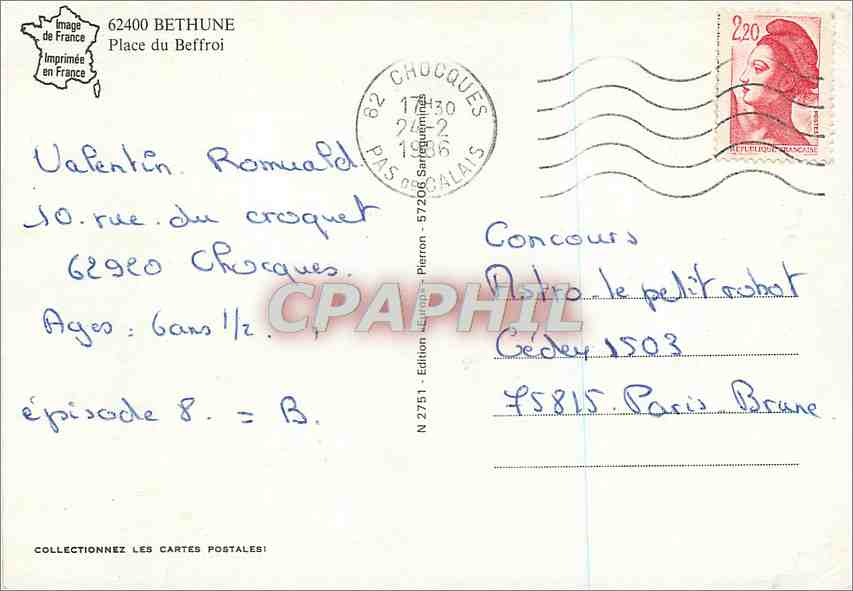 Image
de France
Imprimée
en France
62400 BETHUNE
Place du Beffroi
62 CHOCQUES
17H30
24-2
1986
PAS DE CALAIS
2,20
POSTES
REPUBLIQUE FRANÇAISE
Valentin. Romuald.
10. rue. du croquet
62920 Chocques.
Ages : 6ans 1/2.
épisode 8. = B.
N 2751 - Edition «Europ» - Pierron - 57206 Sarreguemines
Concours
Astro. le petit robot
Cédex 1503
75815. Paris. Brune
CPAPHIL
COLLECTIONNEZ LES CARTES POSTALES!